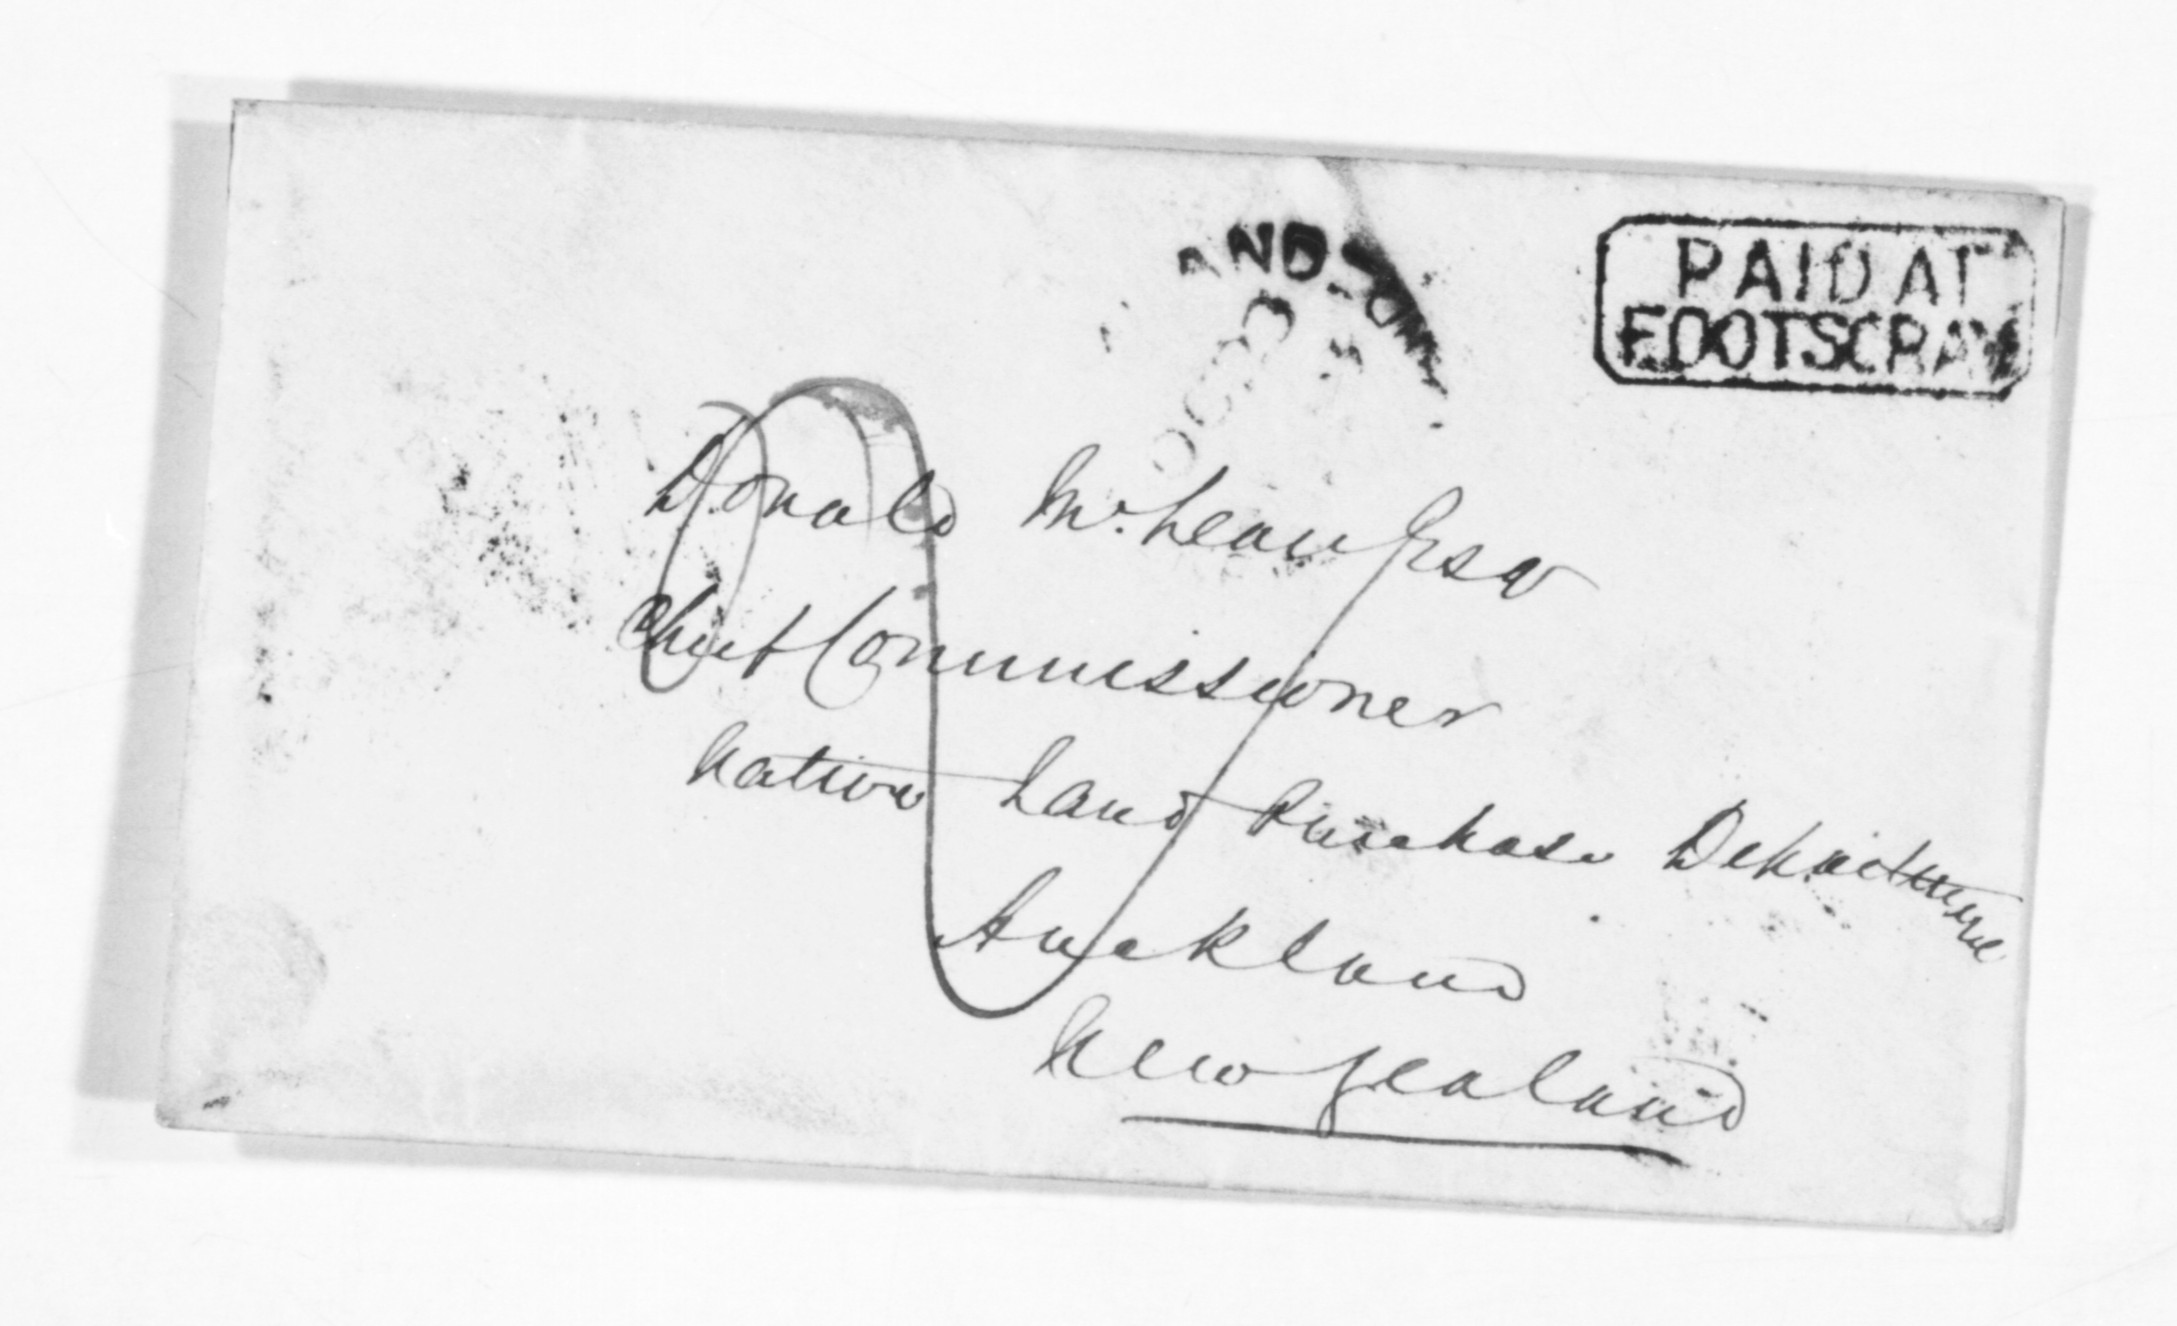 PAID AT
FOOTSCRAY
Donald McLean Esqr
Chief Commissioner
Native Land Purchase Department
Auckland
New Zealand